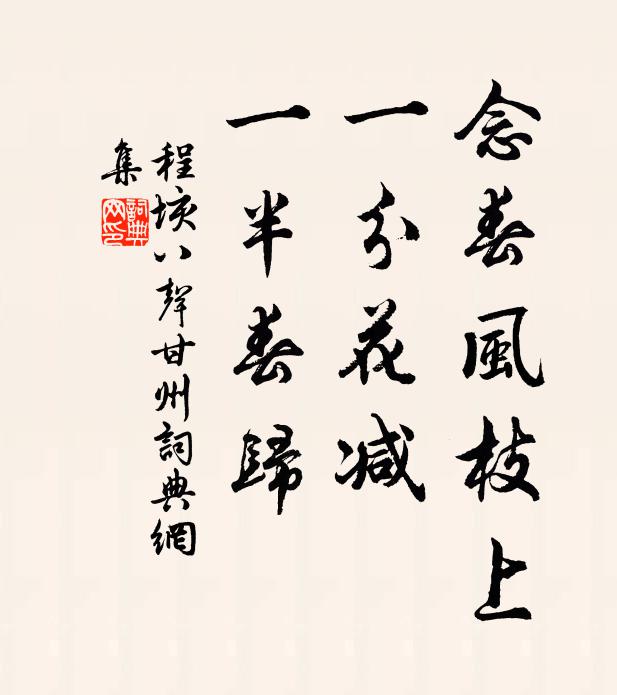 念春風枝上
一分花减
一半春歸
程垓八聲甘州詞典網
集
詞典網印